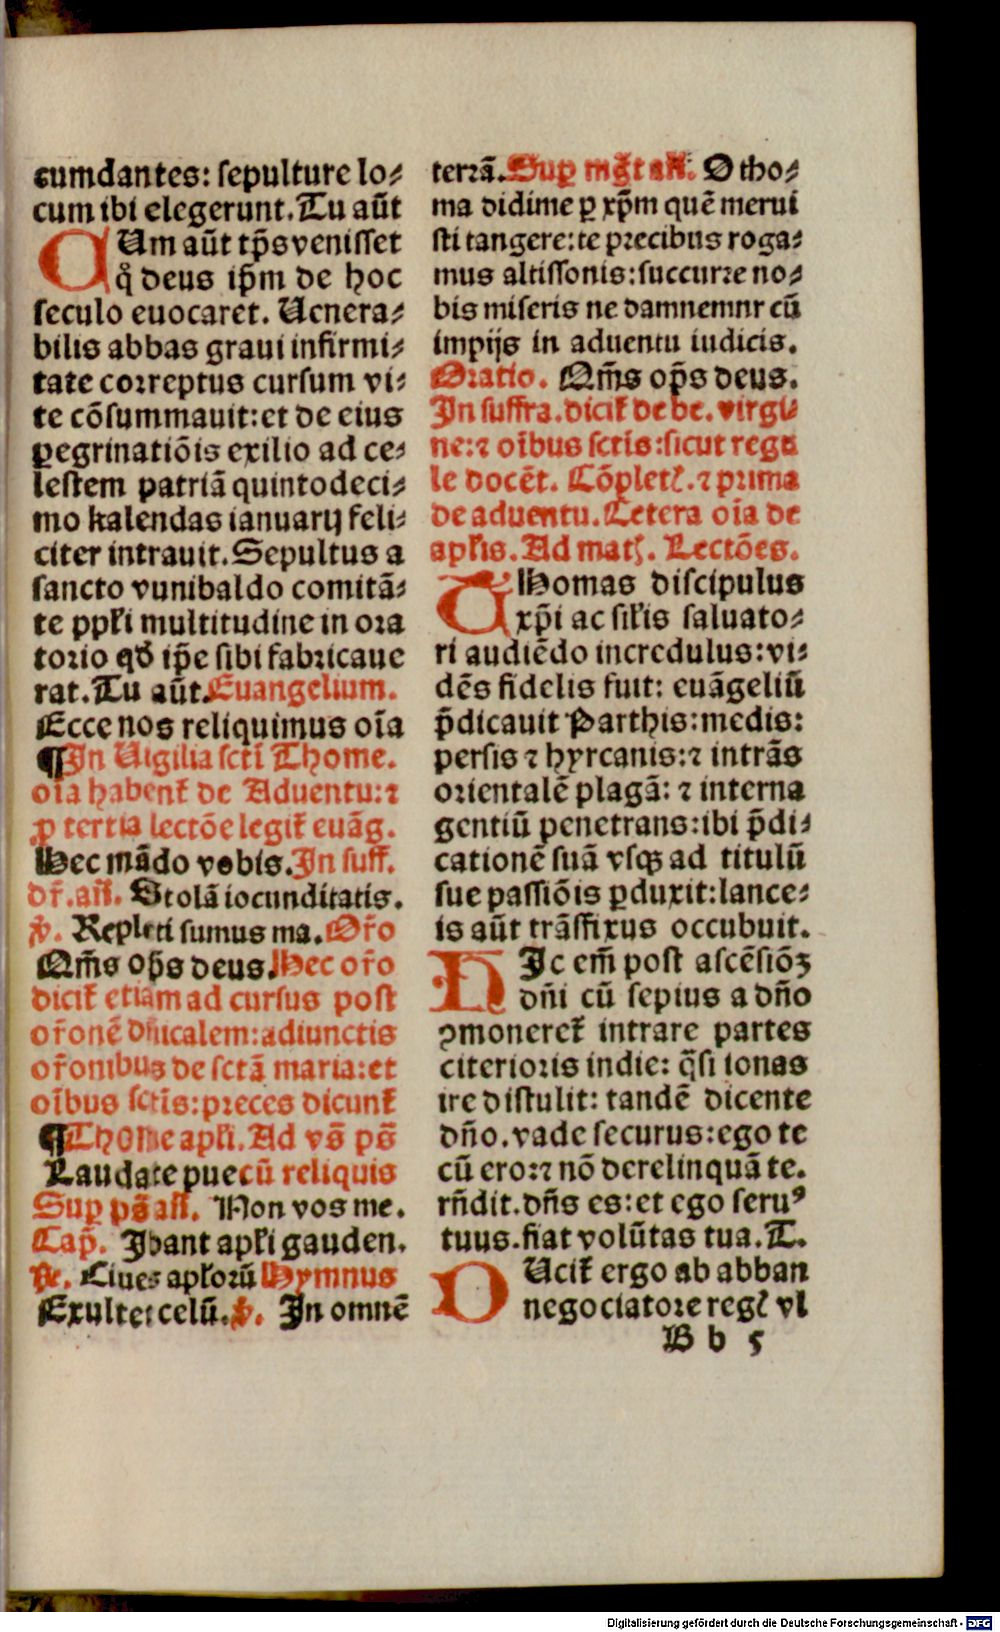 cumdantes: sepulture lo⸗
cum ibi elegerunt. Tu aūt
CUm aūt tp̄s venisset
qͦ deus ip̄m de hoc
seculo euocaret. Uenera⸗
bilis abbas graui infirmi⸗
tate correptus cursum vi⸗
te cōsummauit: et de eius
ꝑegrinatiōis exilio ad ce⸗
lestem patriā quintodeci⸗
mo kalendas ianuarij feli⸗
citer intrauit. Sepultus a
sancto vunibaldo comitā⸗
te ppľi multitudine in ora
torio qđ ip̄e sibi fabricaue
rat. Tu aūt. Euangelium.
Ecce nos reliquimus oīa
¶ In Uigilia sctī Thome.
oīa habent᷑ de Aduentu: ⁊
ꝓ tertia lectōe legit᷑ euāg.
Hec mādo vobis. In suff.
dr̄. añ. Stolā iocunditatis.
ꝟ. Repleti sumus ma. Or̄o
Om̄s op̄s deus. Hec or̄o
dicit᷑ etiam ad cursus post
or̄onē dn̄icalem: adiunctis
or̄onibus de sctā maria: et
oībus sctīs: preces dicunt᷑
¶ Thome apľi. Ad vs̄ ps̄
Laudate pue cū reliquis
Suꝑ ps̄ añ. Non vos me.
Cap̄. Ibant apľi gauden.
℟. Ciues apľorū Hymnus
Exultet celū. ꝟ. In omnē
terrā. Suꝑ mḡt añ. O tho⸗
ma didime ꝑ xp̄m quē merui
sti tangere: te precibus roga⸗
mus altissonis: succurre no⸗
bis miseris ne damnemur cū
impijs in aduentu iudicis.
Oratio. Om̄s op̄s deus.
In suffra. dicit᷑ de be. virgi⸗
ne: ⁊ oībus sctīs: sicut regu
le docēt. Cōpletꝭ. ⁊ prima
de aduentu. Cetera oīa de
apľis. Ad matꝭ. Lectōes.
THomas discipulus
xp̄i ac siľis saluato⸗
ri audiēdo incredulus: vi⸗
dēs fidelis fuit: euāgeliū
p̄dicauit Parthis: medis:
persis ⁊ hyrcanis: ⁊ intrās
orientalē plagā: ⁊ interna
gentiū penetrans: ibi p̄di⸗
cationē suā vsqꝫ ad titulū
sue passiōis ꝑduxit: lance⸗
is aūt trāsfixus occubuit.
HIc em̄ post ascēsiōꝫ
dn̄i cū sepius a dn̄o
ꝯmoneret᷑ intrare partes
citerioris indie: q̄si ionas
ire distulit: tandē dicente
dn̄o. vade securus: ego te
cū ero: ⁊ nō derelinquā te.
rn̄dit. dn̄s es: et ego seruꝰ
tuus. fiat volūtas tua. T.
DUcit᷑ ergo ab abban
negociatore regꝭ vl
B b 5
Digitalisierung gefördert durch die Deutsche Forschungsgemeinschaft - DFG